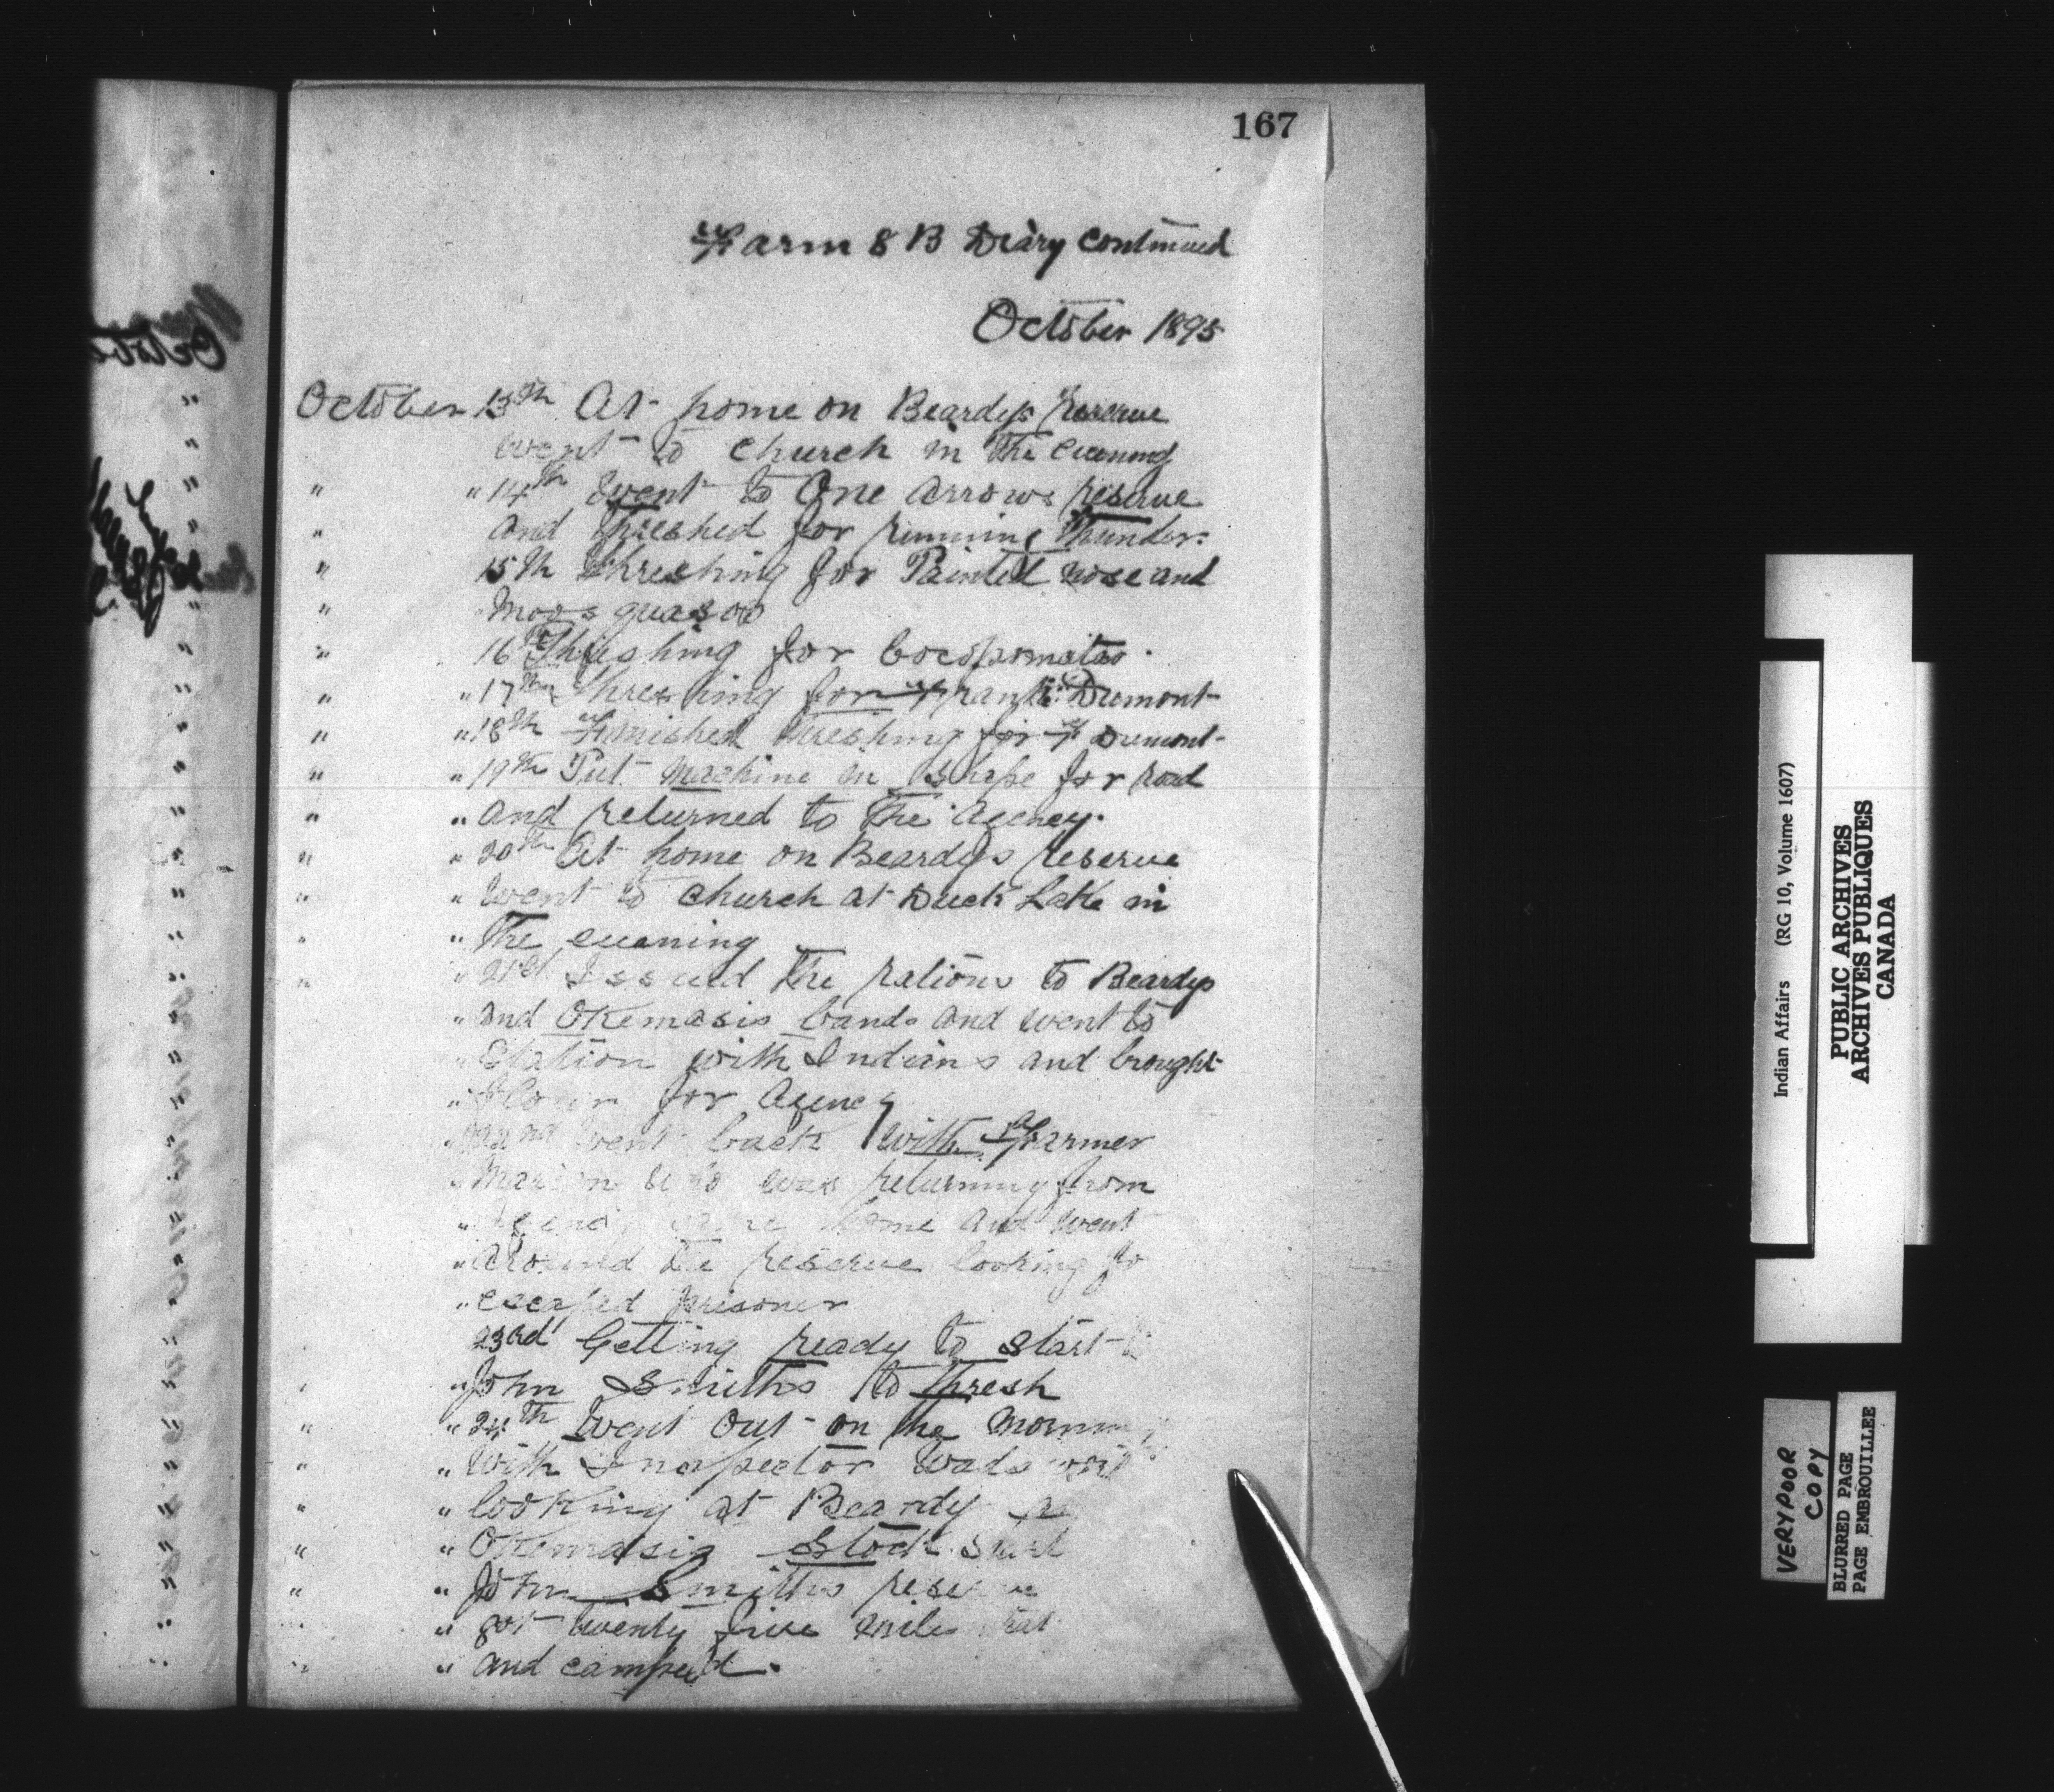 167
Farm 8 B Diary Continued
October 1895
October 13th At home on Beardys reserve
went to church in the evening
" " 14th Went to One Arrows reserve
" and threshed for running Thunder.
" 15th Threshing for Painted nose and
"
" 16th Threshing for
" " 17th Threshing for Frank Dumont
" " 18th Finished threshing for F Dumont
" " 19th Put machine in shape for road
" " and returned to the Agency.
" " 20th At home on Beardys reserve
" " Went to church at Duck Lake in
" " The evening
" " 21st Issued the rations to Beardys
" and Okemasis bands and went to
" Station with Indians and brought
" flour for Agency
" 22nd Went back with Farmer
" Marion who was returning from
" Agency came home and went
" around the reserve looking fo
" escaped prisoner
23rd Getting ready to start
" " John Smiths to thresh
" " 24th Went out on the Morning
" " With Inspector Wadswort
" " looking at Beardy
" " Okemasis stock
" " John Smiths reserve
" " got twenty five mile
" " and camped.
Indian Affairs (RG 10, Volume 1607)
PUBLIC ARCHIVES
ARCHIVES PUBLIQUES
CANADA
VERY POOR
COPY
BLURRED PAGE
PAGE EMBROUILLEE